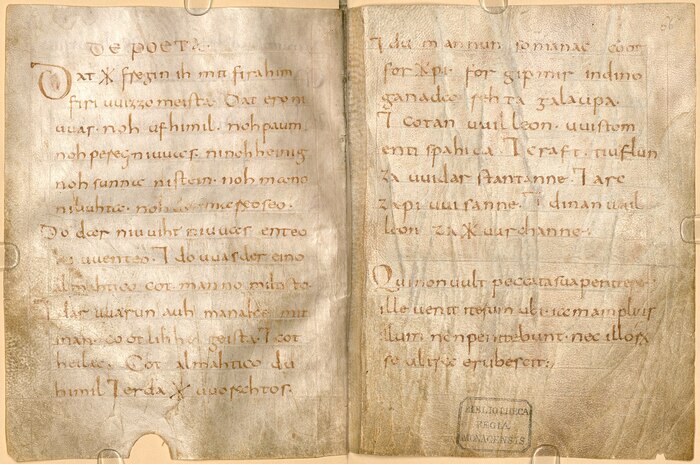 DE POETA.
Dat * fregin ih mit firahim
firi uuizzo meista. Dat ero ni
uuas. noh ufhimil. noh paum
noh pereg ni uuas. ninohheinig
noh sunna nistein. noh mano
niliuhta. noh der mareo seo.
Do dar niuuiht niuuas enteo
ni uuenteo. ⁊ do uuas der eino
almahtico cot manno milisto.
⁊ dar uuarun auh manake mit
inan. cootlihhe geista. ⁊ cot
heilac. Cot almahtico du
himil ⁊ erda * uuorahtos.
⁊ du mannun so manac coot
for*pi. for gipmir indino
ganada rehta galaupa.
⁊ cotan uuilleon. uuistom
enti spahida. ⁊ craft. tiuflun
za uuidar stantanne. ⁊ arc
zapi uuisanne. ⁊ dinan uuil
leon za * uurchanne.
Qui non uult peccata sua penitere
ille uenit iterum ubi iam amplius
illum non penitebunt. nec illorꝝ
se ultra erubescit.
BIBLIOTHECA
REGIA
MONACENSIS